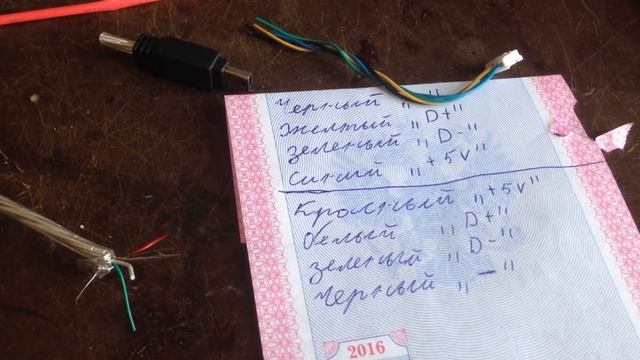 Черный „ - "
Желтый „ D+"
зеленый „ D-"
синий „ +5v"
Красный „ +5v"
белый „ D+"
зеленый „ D-"
черный „ - "
2016